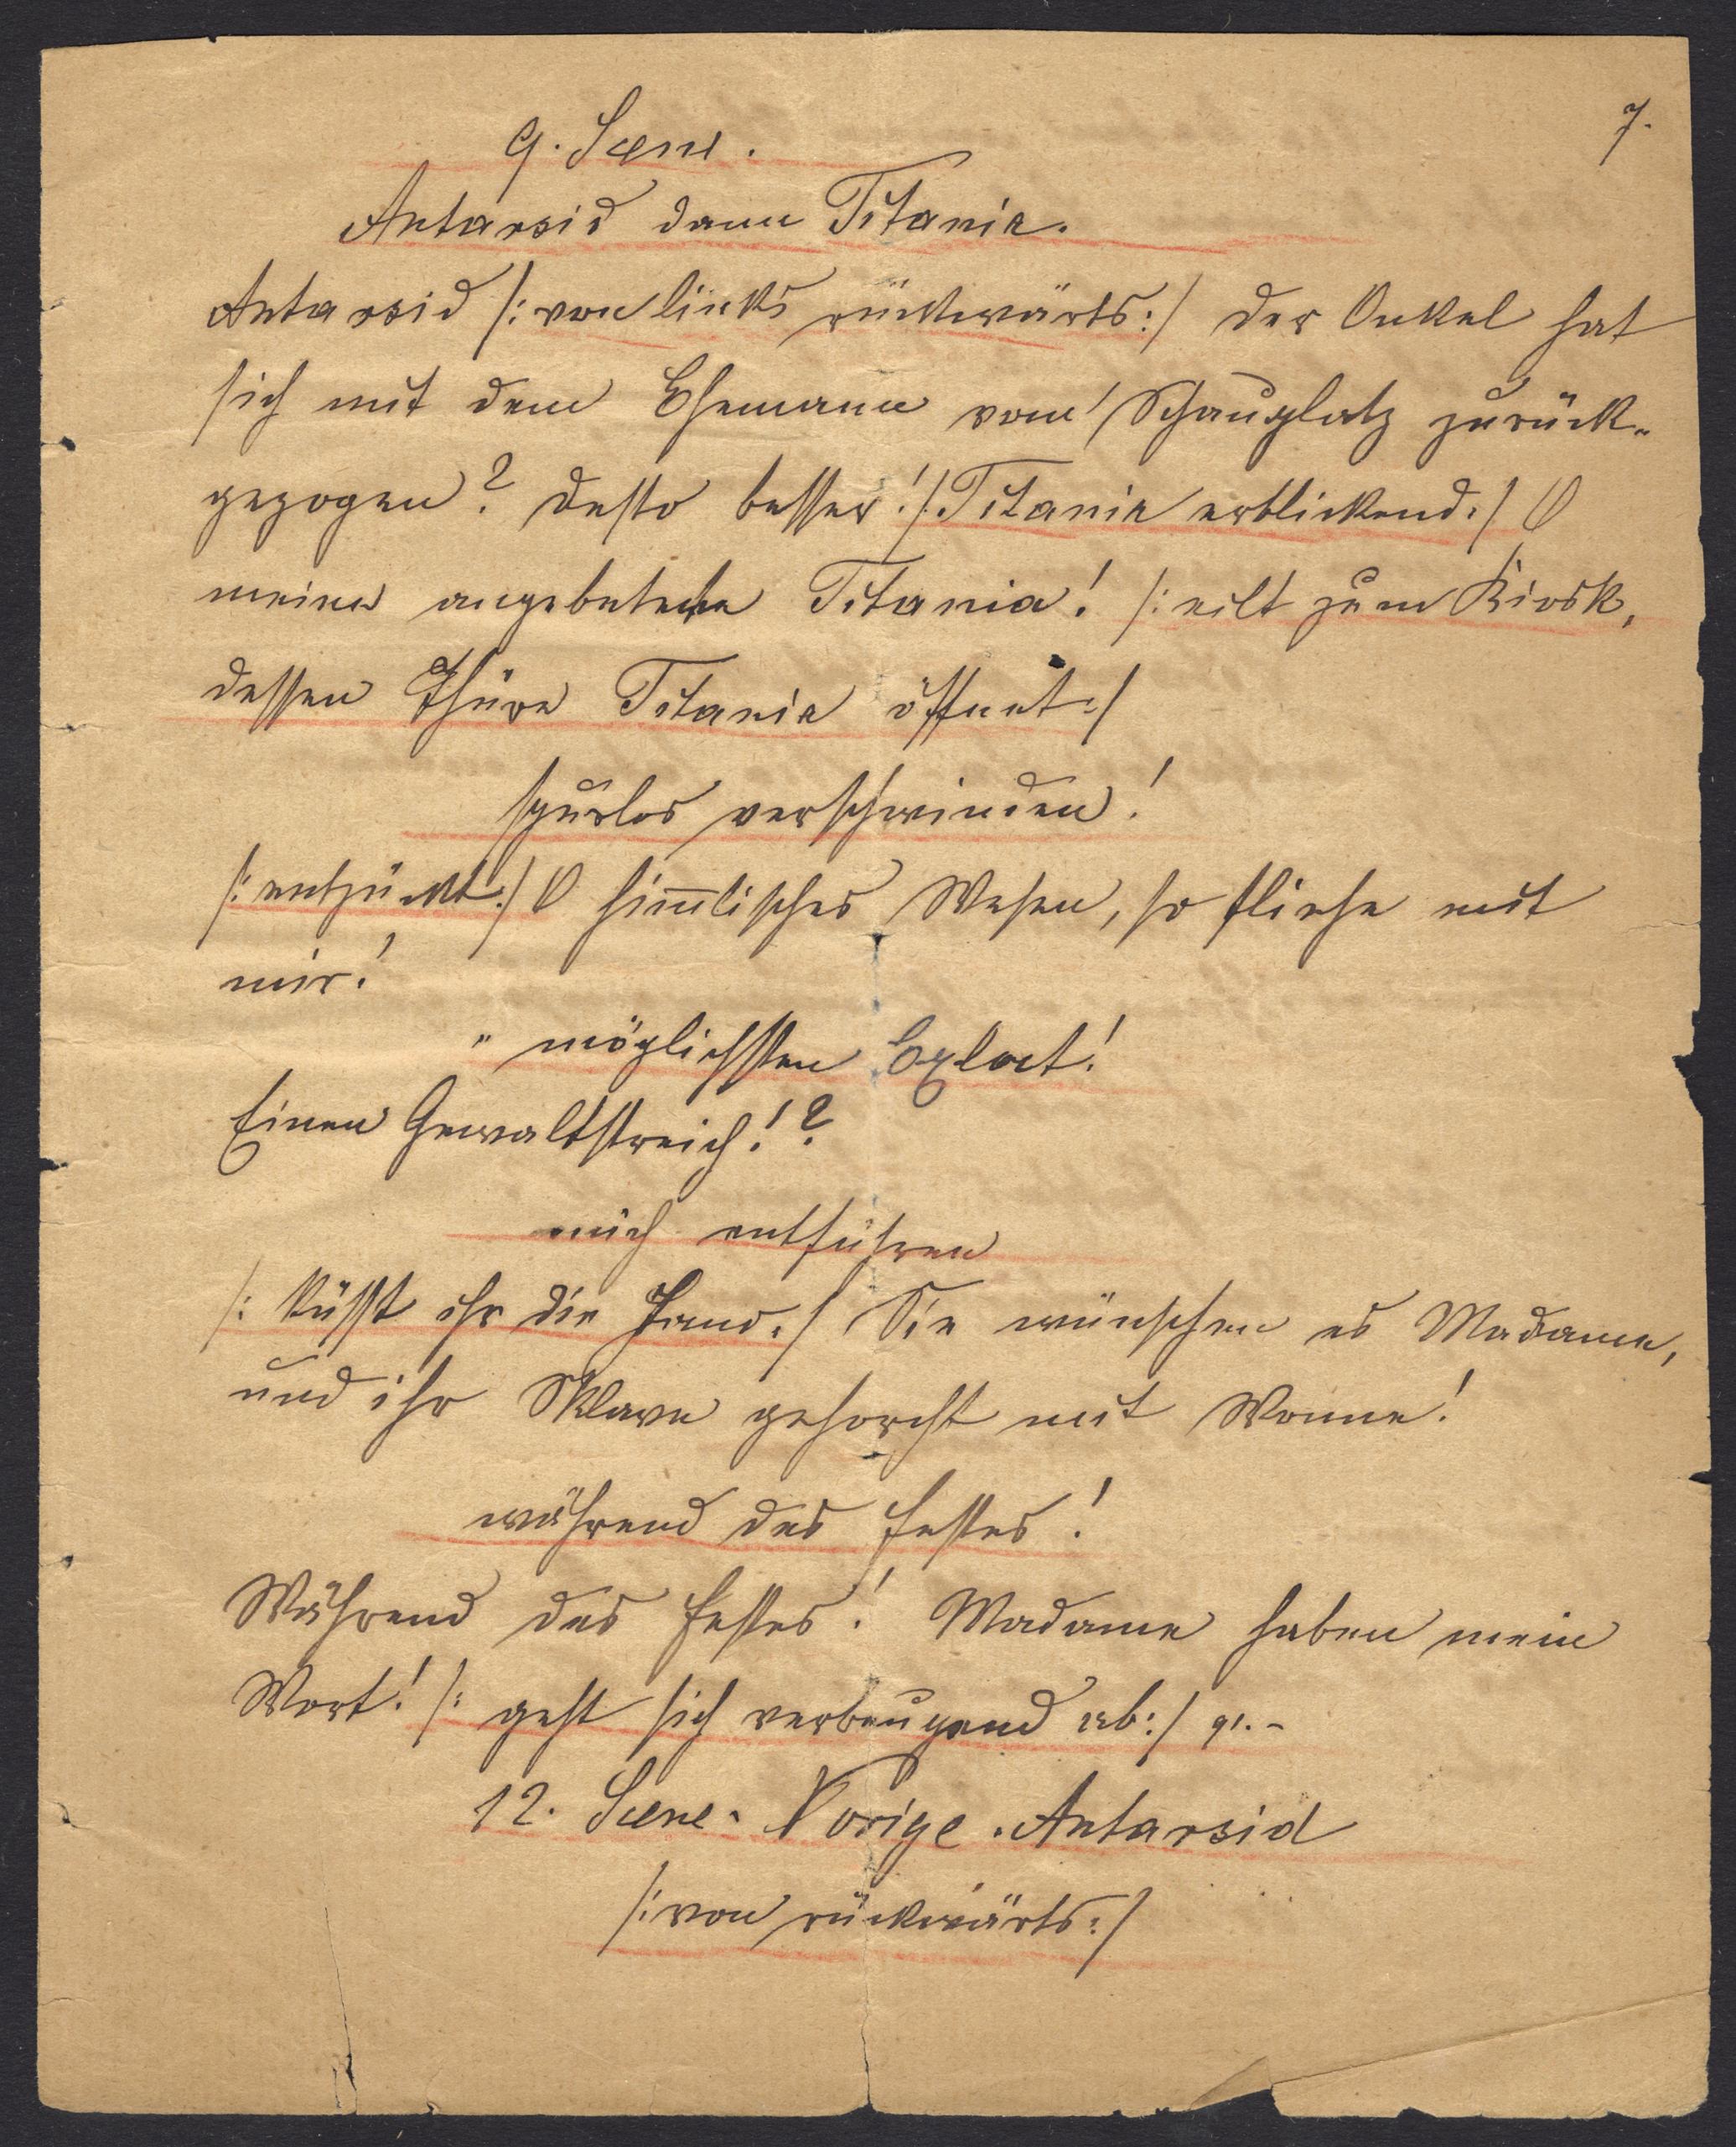 7.
9. Scene.
Antarsid dann Titania.
Antarsid /: von links rückwärts :/ der Onkel hat
sich mit dem Ehemann vom Schauplatz zurück-
gezogen? desto besser! /: Titania erblickend :/ O
meine angebetete Titania! /: eilt zum Kiosk,
dessen Thüre Titania öffnet :/
spurlos verschwinden!
/: entzückt :/ O him̅lisches Wesen, so fliehe mit
mir!
" möglichsten Eclat!
Einen Gewaltstreich!?
mich entführen
/: küsst ihr die Hand :/ Sie wünschen es Madame,
und ihr Sklave gehorcht mit Wonne!
während des Festes!
Während des Festes! Madame haben mein
Wort! /: geht sich verbeugend ab :/
12. Scene. Vorige. Antarsid
/: von rückwärts :/